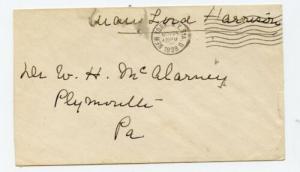 Mary Lord Harrison
Dr W. H. McAlarney
Plymouth
Pa